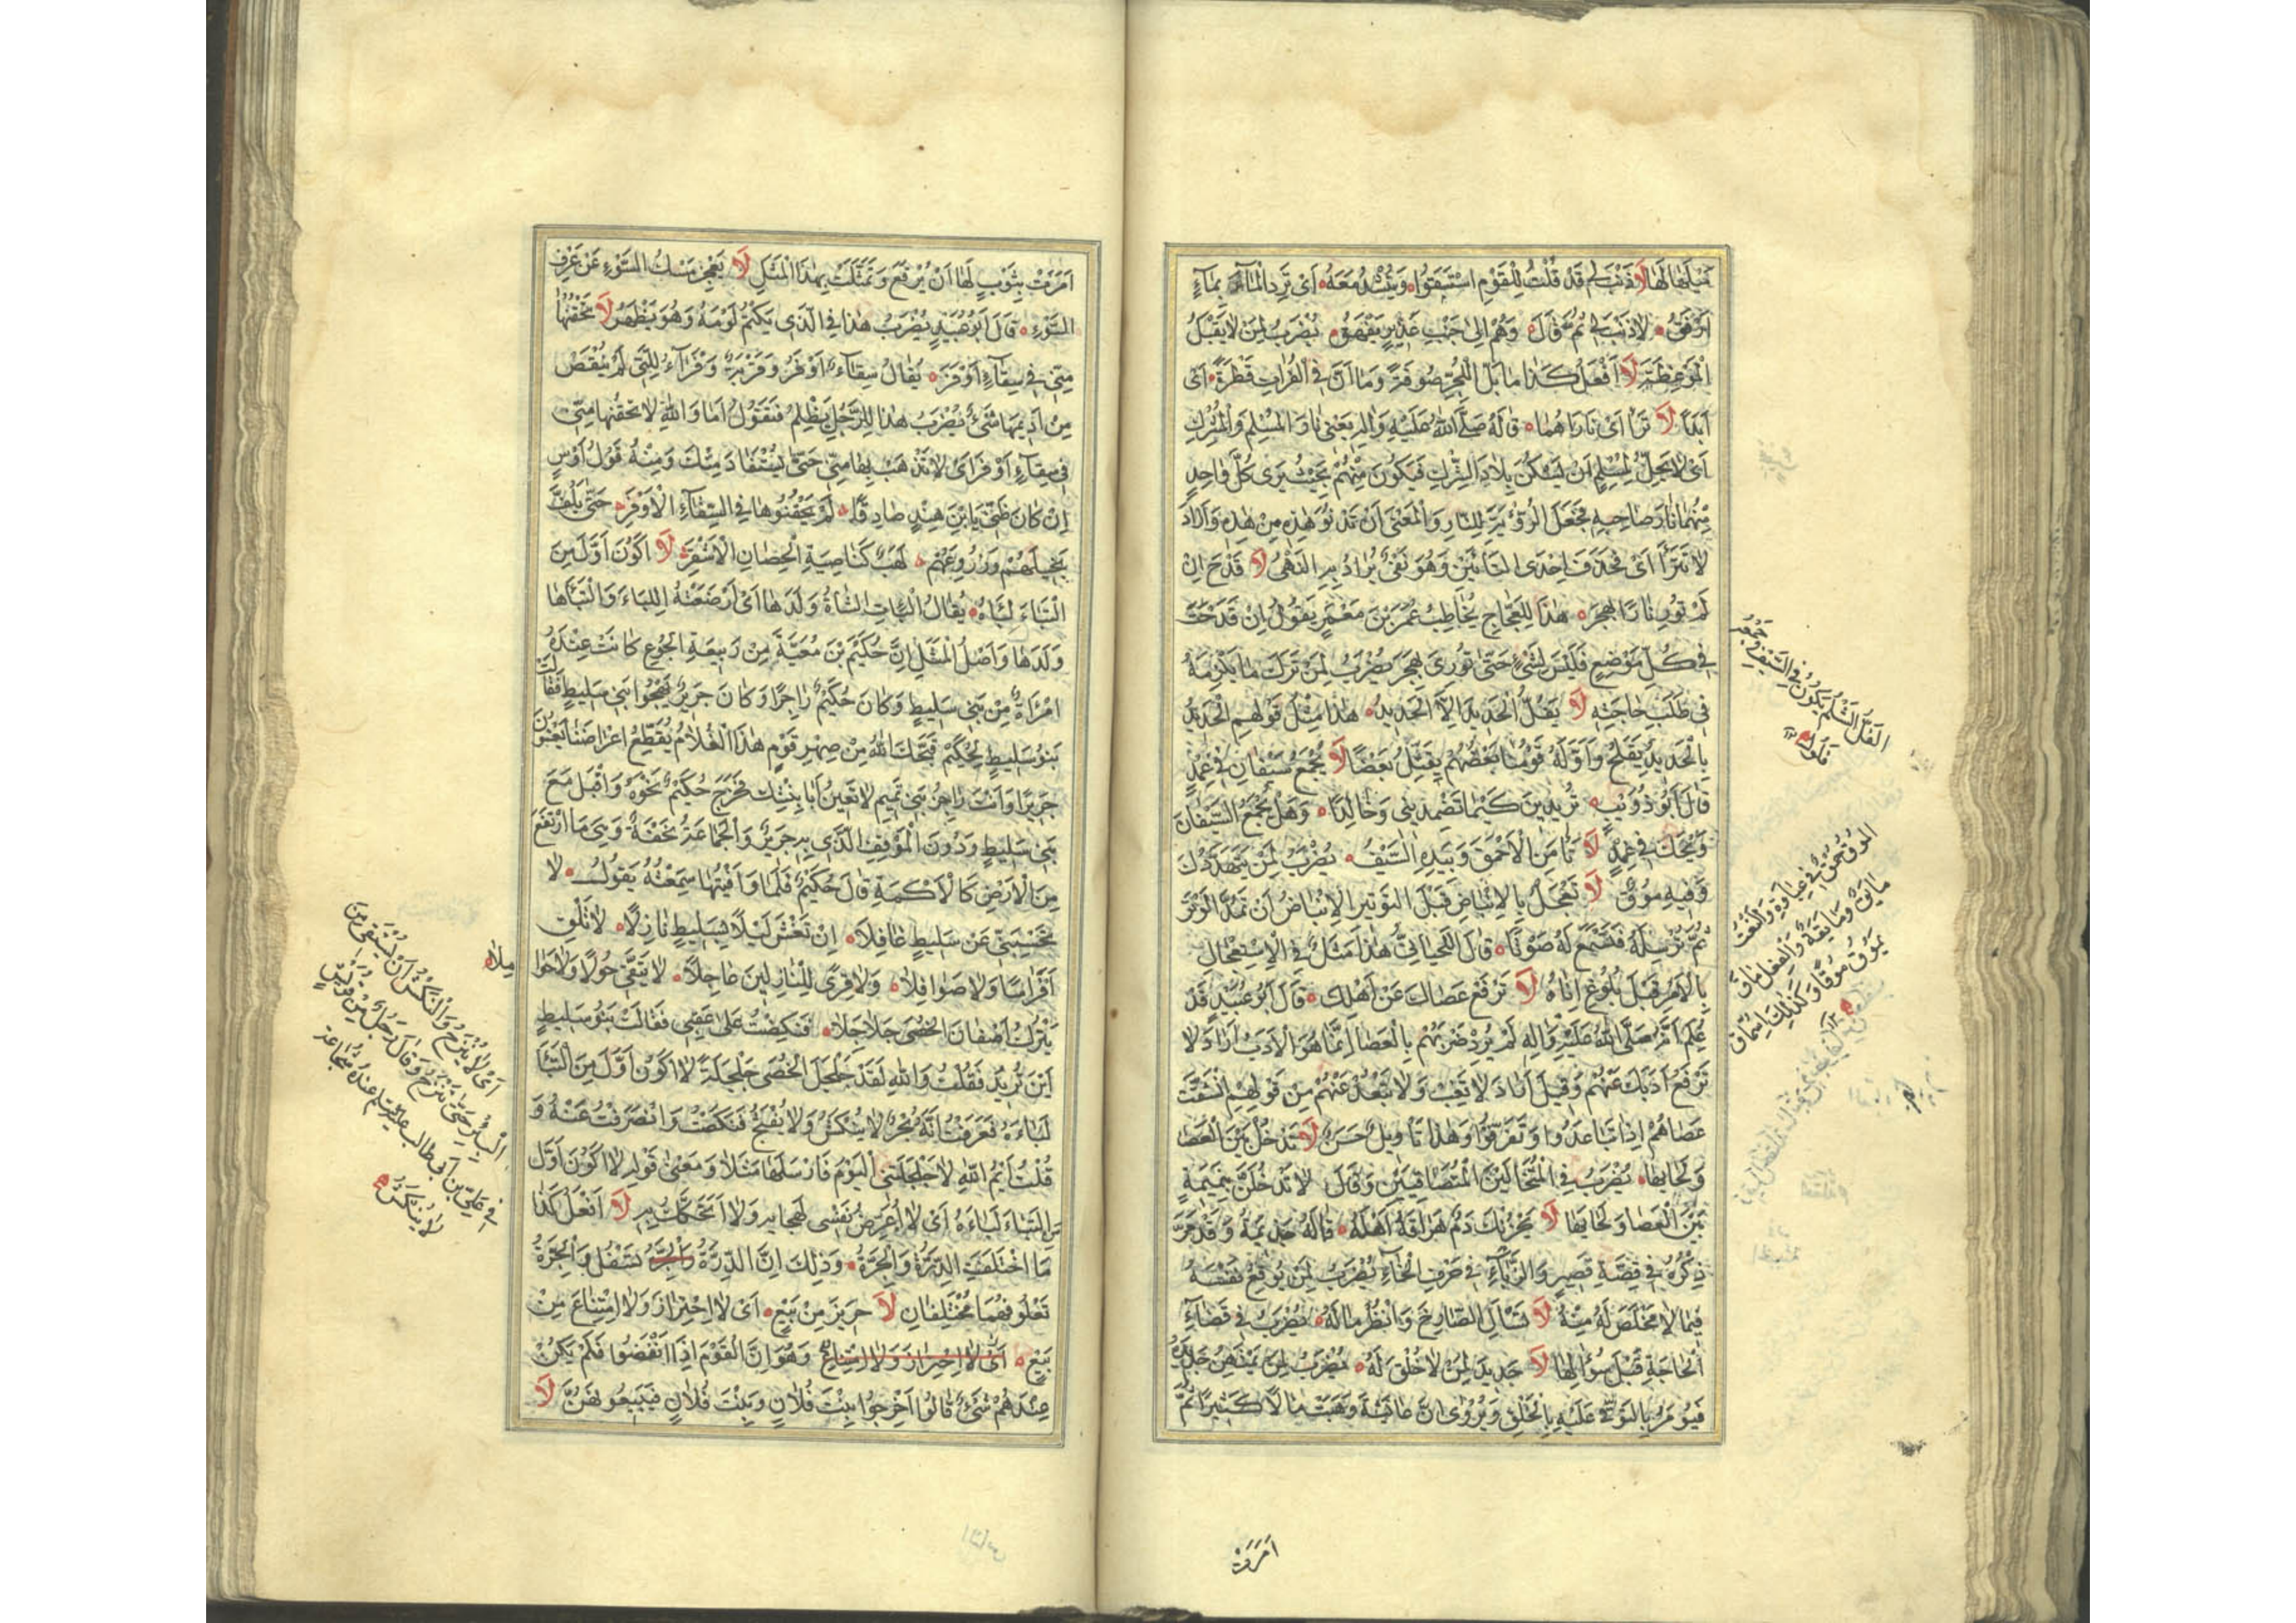 مثلها لها لا ذنب لي قد قلت للقوم استقوا وينشد معه اى ترد الماء بماء
ارفق لا ذنب لي ثم قال وهم الى جنب غدير يفهق يضرب لمن لا يقبل
الموعظة لا افعل كذا ما بل البحر صوفة وما ان في الفرات قطرة اى
ابدا لا ترا اى ناراهما قاله صلى الله عليه واله يعنى نار المسلم والمشرك
اى لا يحل لمسلم ان يسكن بلاد الشرك فيكون منهم بحيث يرى كل واحد
منهما نار صاحبه فجعل الرؤية للنار والمعنى ان تدنو هذه من هذه واراد
لا تترا اى فحذف احدى التائين وهو نفى يراد به النهى لا قدح ان
لم تور نارا بهجر هذا للعجاج يخاطب عمر بن معمر يقول ان قدحت
في كل موضع فليس بشئ حتى تورى بهجر يضرب لمن ترك ما يلزمه
في طلب حاجته لا يفل الحديد الا الحديد هذا مثل قولهم الحديد
بالحديد يفلح واوله قومنا بعضهم يقتل بعضا لا يجمع سيفان في غمد
قال ابو ذؤيب تريدين كيما تضمدينى وخالدا وهل يجمع السيفان
ويحك في غمد لا تامن الاحمق وبيده السيف يضرب لمن يتهددك
وفيه موق لا تعجل بالانباض قبل التوتير الانباض ان تمد الوتر
ثم ترسله فتسمع له صوتا قال اللحيانى هذا مثل في الاستعجال
بالامر قبل بلوغ اناه لا ترفع عصاك عن اهلك قال ابو عبيد قد
علم انه صلى الله عليه واله لم يرد ضربهم بالعصا انما هو الادب اراد لا
ترفع ادبك عنهم وقيل اراد لا تغب ولا تبعد عنهم من قولهم انشقت
عصاهم اذا تباعدوا وتفرقوا وهذا تاويل حسن لا تدخل بين العصا
ولحائها يضرب في المتخالين المتصافيين وقال لا تدخلن بنميمة
بين العصا ولحائها لا يحزنك دم هراقه اهله قاله جذيمة وقد مر
ذكره في قصة قصير والزباء في حرف الخاء يضرب لمن يوقع نفسه
فيما لا مخلص له منه لا تسال الصارخ وانظر ماله يضرب في قضاء
الحاجة قبل سؤالها لا جديد لمن لا خلق له يضرب لمن يمتهن جديده
فيؤمر بالتوقى عليه بالخلق ويروى ان عائشة وهبت مالا كثيرا ثم
الفل الثلم يكون في السيف وجمعه
فلول
الموق حمق في غباوة والنعت
مائق ومائقة والفعل ماق
يموق موقا وكذلك استماق
امرت
امرت بثوب لها ان يرقع وتمثلت بهذا المثل لا يعجز مسك السوء عن عرف
السوء قال ابو عبيد يضرب هذا في الذى يكتم لومه وهو يظهر لا تحقنها
منى في سقاء اوفر يقال سقاء اوفر وقربة وفراء للتى لم ينقص
من اديمها شئ يضرب هذا للرجل يظلم فتقول اما والله لا تحقنها منى
في سقاء اوفر اى لا تذهب بها منى حتى يستقاد منك ومنه قول اوس
ان كان ظنى يا ابن هند صادقا لم يحقنوها في السقاء الاوفر حتى يلف
نخيلهم وزروعهم لهب كناصية الحصان الاشقر لا اكون اول من
البَاءَ لباه يقال الباَت الشاة ولدها اى ارضعته اللباء والتباها
ولدها واصل المثل ان حكيم بن معية من ربيعة الجوع كانت عنده
امراة من بنى سليط وكان حكيم راجزا وكان جرير يهجوا بنى سليط فقالت
بنو سليط لحكيم قبحك الله من صهر قوم هذا الغلام يقطع اعراضنا يعنون
جريرا وانت راجز بنى تميم لا تعين ابا بنتك فخرج حكيم نحوه واقبل مع
بنى سليط ودون الموقف الذى به جرير والجماعة نجفة وهى ما ارتفع
من الارض كالاكمة قال حكيم فلما وافيتها سمعته يقول لا
تحسبنى عن سليط غافلا ان تغش ليلا بسليط نازلا لا تلق
افراسا ولا صواهلا ولا قرى للنازلين عاجلا لا يتقى حولا ولا حواملا
يترك اصفان الخصى جلاجلا فنكصت على عقبى فقالت بنو سليط
اين تريد فقلت والله لقد جلجل الخصى جلجلة لا اكون اول من التبا
لباءه فعرفت انه بحر لا ينكش ولا يفثج فنكصت وانصرفت عنه و
قلت ايم الله لا جلجلتنى اليوم فارسلها مثلا ومعنى قوله لا اكون اول
من التباء لباءه اى لا اعرض نفسى لهجايه ولا اتحكك به لا افعل كذا
ما اختلفت الدرة والجرة وذلك ان الدرة والجرة تسفل والجرة
تعلو فهما مختلفان لا حريز من بيع اى لا احتراز ولا امتناع من
بيع اى لا احتراز ولا امتناع وهو ان القوم اذا انفضوا فلم يكن
عندهم شئ قالوا اخرجوا بنت فلان وبنت فلان فيبيعوهن لا
اى لا ينزح والنكش ان يستقى من
البئر حتى تنزح وقال رجل من قريش
في على بن ابى طالب عليه السلام عنده شجاعة
لا ينكش